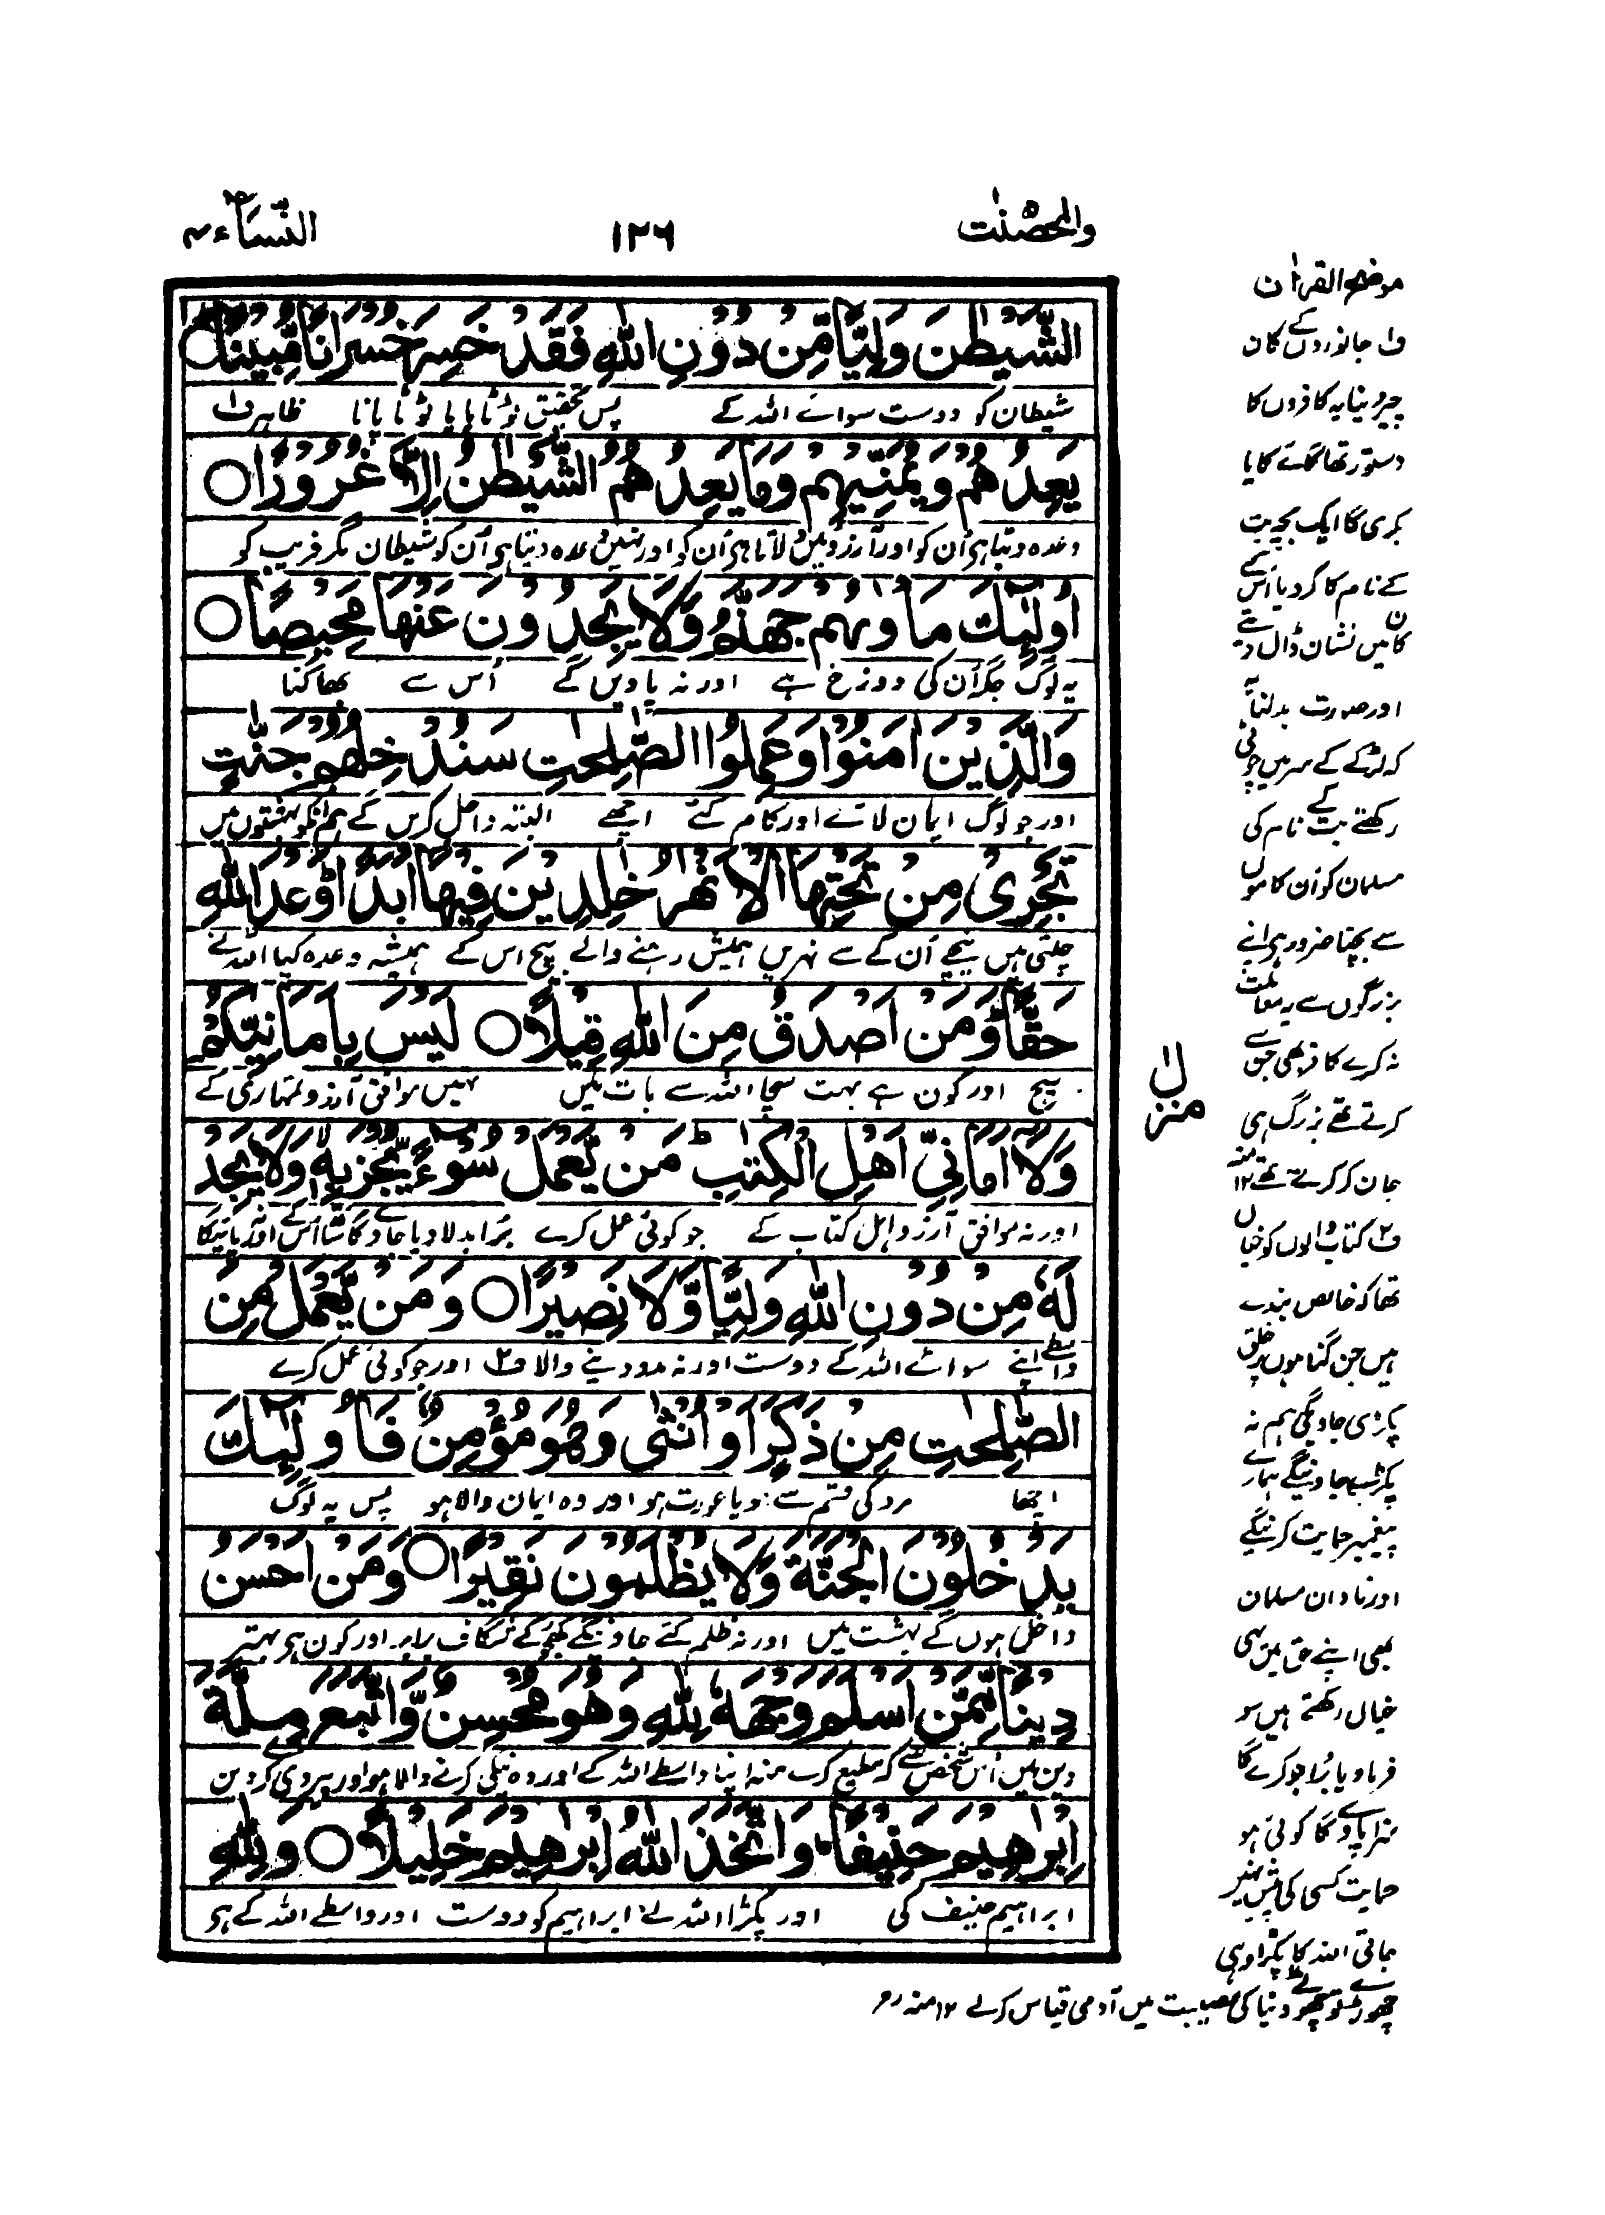 والمحصنت
١٢٦
النسآء ٤
الشَّيْطٰنَ وَلِيًّا مِّنْ دُوْنِ اللّٰهِ فَقَدْ خَسِرَ خُسْرَانًا مُّبِيْنًا
شیطان کو دوست سوائے اللہ کے پس تحقیق ٹوٹا پایا ٹوٹا پانا ظاہر ف۱
يَعِدُهُمْ وَيُمَنِّيْهِمْ وَمَا يَعِدُهُمُ الشَّيْطٰنُ اِلَّا غُرُوْرًا
وعدہ دیتا ہی اُن کو اور آرزو میں لاتا ہی اُن کو اور نہیں وعدہ دیتا ہی اُن کو شیطان مگر فریب کو
اُولٰٓئِكَ مَاْوٰىهُمْ جَهَنَّمُ وَلَا يَجِدُوْنَ عَنْهَا مَحِيْصًا
یہ لوگ جگہ اُن کی دوزخ ہے اور نہ پاویں گے اُس سے بھاگنا
وَالَّذِيْنَ اٰمَنُوْا وَعَمِلُوا الصّٰلِحٰتِ سَنُدْخِلُهُمْ جَنّٰتٍ
اور جو لوگ ایمان لائے اور کام کئے اچھے البتہ داخل کریں گے ہم انکو بہشتوں میں
تَجْرِيْ مِنْ تَحْتِهَا الْاَنْهٰرُ خٰلِدِيْنَ فِيْهَا اَبَدًا وَعْدَ اللّٰهِ
چلتی ہیں نیچے اُن کے سے نہریں ہمیش رہنے والے بیچ اس کے ہمیشہ وعدہ کیا اللہ نے
حَقًّا وَمَنْ اَصْدَقُ مِنَ اللّٰهِ قِيْلًا لَيْسَ بِاَمَانِيِّكُمْ
سچ اور کون ہے بہت سچا اللہ سے بات میں نہیں موافق آرزو تمہاری کے
وَلَا اَمَانِيِّ اَهْلِ الْكِتٰبِ مَنْ يَّعْمَلْ سُوْٓءًا يُّجْزَ بِهٖ وَلَا يَجِدْ
اور نہ موافق آرزو اہل کتاب کے جو کوئی عمل کرے بُرا بدلا دیا جاوے گا ساتھ اُس کے اور نہ پاوے گا
لَهٗ مِنْ دُوْنِ اللّٰهِ وَلِيًّا وَّلَا نَصِيْرًا وَمَنْ يَّعْمَلْ مِنَ
واسطے اپنے سوائے اللہ کے دوست اور نہ مدد دینے والا ف۲ اور جو کوئی عمل کرے
الصّٰلِحٰتِ مِنْ ذَكَرٍ اَوْ اُنْثٰى وَهُوَ مُؤْمِنٌ فَاُولٰٓئِكَ
اچھا مرد کی قسم سے ہو یا عورت ہو اور وہ ایمان والا ہو پس یہ لوگ
يَدْخُلُوْنَ الْجَنَّةَ وَلَا يُظْلَمُوْنَ نَقِيْرًا وَمَنْ اَحْسَنُ
داخل ہوں گے بہشت میں اور نہ ظلم کئے جاوینگے کھجور کے شگاف برابر اور کون ہی بہتر
دِيْنًا مِّمَّنْ اَسْلَمَ وَجْهَهٗ لِلّٰهِ وَهُوَ مُحْسِنٌ وَّاتَّبَعَ مِلَّةَ
دین میں اُس شخص سے کہ مطیع کرے منہ اپنا واسطے اللہ کے اور وہ نیکی کرنے والا ہو اور پیروی کرے دین
اِبْرٰهِيْمَ حَنِيْفًا وَاتَّخَذَ اللّٰهُ اِبْرٰهِيْمَ خَلِيْلًا وَلِلّٰهِ
ابراہیم حنیف کی اور پکڑا اللہ نے ابراہیم کو دوست اور واسطے اللہ کے ہی
منزل
موضح القرآن
ف۱ جانوروں کے کان
چیرونیا یہ کافروں کا
دستور تھا گائے کا یا
بکری کا ایک بچہ بت
کے نام کا کر دیا اُس کے
کان میں نشان ڈال دیتے
اور صورت بدلنا یہ
کہ لڑکے کے سر میں چوٹی
رکھتے بت کے نام کی
مسلمان کو ان کاموں
سے بچنا ضرور ہی اپنے
بزرگوں سے یہ معاملت
نہ کرے کافر بھی جن سے
کرتے تھے بزرگ ہی
جان کر کرتے تھے ۱۲ منہ
ف۲ کتاب والوں کو خیال
تھا کہ خالص بندے
ہیں جن گناہوں پر خلق
پکڑی جاویگی ہم نہ
پکڑے جاوینگے ہمارے
پیغمبر حمایت کرینگے
اور نادان مسلمان
بھی اپنے حق میں یہی
خیال رکھتے ہیں سو
فرمادیا بُرا جو کرے گا
سزا پاوے گا کوئی ہو
حمایت کسی کی پیش نہیں
جاتی اللہ کا پکڑا وہی
چھوڑے تو چھوٹے دنیا کی مصیبت میں آدمی قیاس کرلے ۱۲ منہ رح